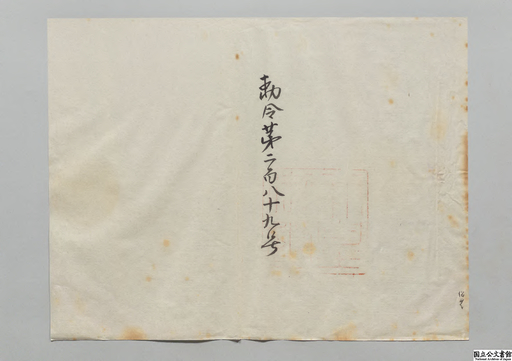 勅令第二百八十九号
国立公文書館
National Archives of Japan